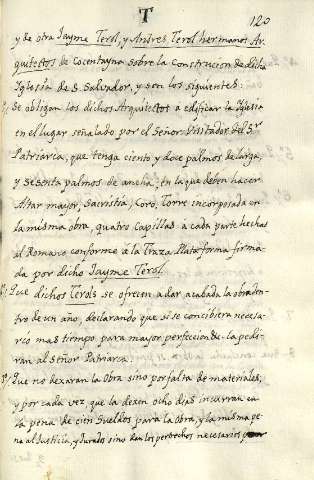 T
120
y de otra Jayme Terol, y Andres Terol hermanos Ar-
quitectos de Cocentayna sobre la construcion de dicha
Iglesia de S. Salvador, y son los siguientes.
Se obligan los dichos Arquitectos a edificar la Iglesia
en el lugar señalado por el Señor Visitador del Sr.
Patriarca, que tenga ciento y doce palmos de larga,
y sesenta palmos de ancha, en la que deben hacer
Altar mayor, Sacristia, Coro, Torre incorporada en
la misma obra, quatro Capillas a cada parte hechas
al Romano conforme a la Traza, Plataforma firma-
da por dicho Jayme Terol.
Que dichos Terols se ofrecen a dar acabada la obra den-
tro de un año, declarando que si se concibiera necesa-
rio mas tiempo para mayor perfeccion de la pedi-
ran al Señor Patriarca.
Que no dexaran la Obra sino por falta de materiales,
y por cada vez que la dexen ocho dias incurran en
la pena de cien Sueldos para la Obra, y la misma pe-
na al Justicia, y Jurados sino dan los pertrechos necesarios